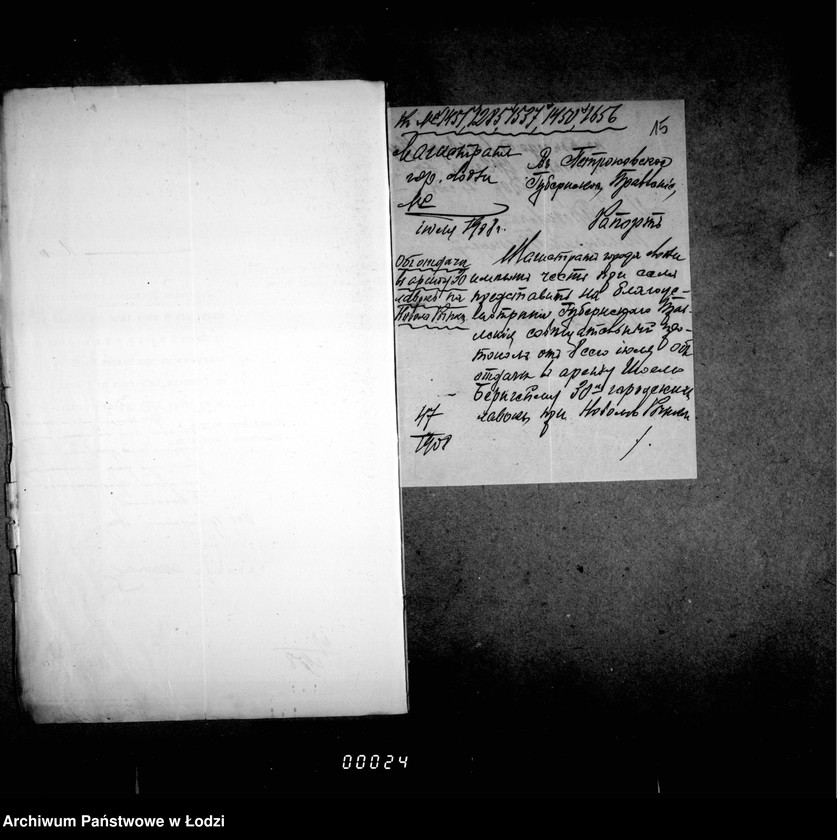 15
Магистратъ
гор. Лодзи
№
июля 1908 г.
Въ Петроковское
Губернское Правленіе,
Рапортъ
Объ отдачѣ
въ аренду 30
лавокъ на
Новомъ Рынкѣ
Магистратъ города Лодзи
имѣетъ честь при семъ
представить на благоус-
мотрѣніе Губернскаго Прав-
ленія
токола отъ 8 сего іюля объ
отдачѣ въ аренду
30 городскихъ
лавокъ при Новомъ Рынкѣ
47
1908
00024
Archiwum Państwowe w Łodzi